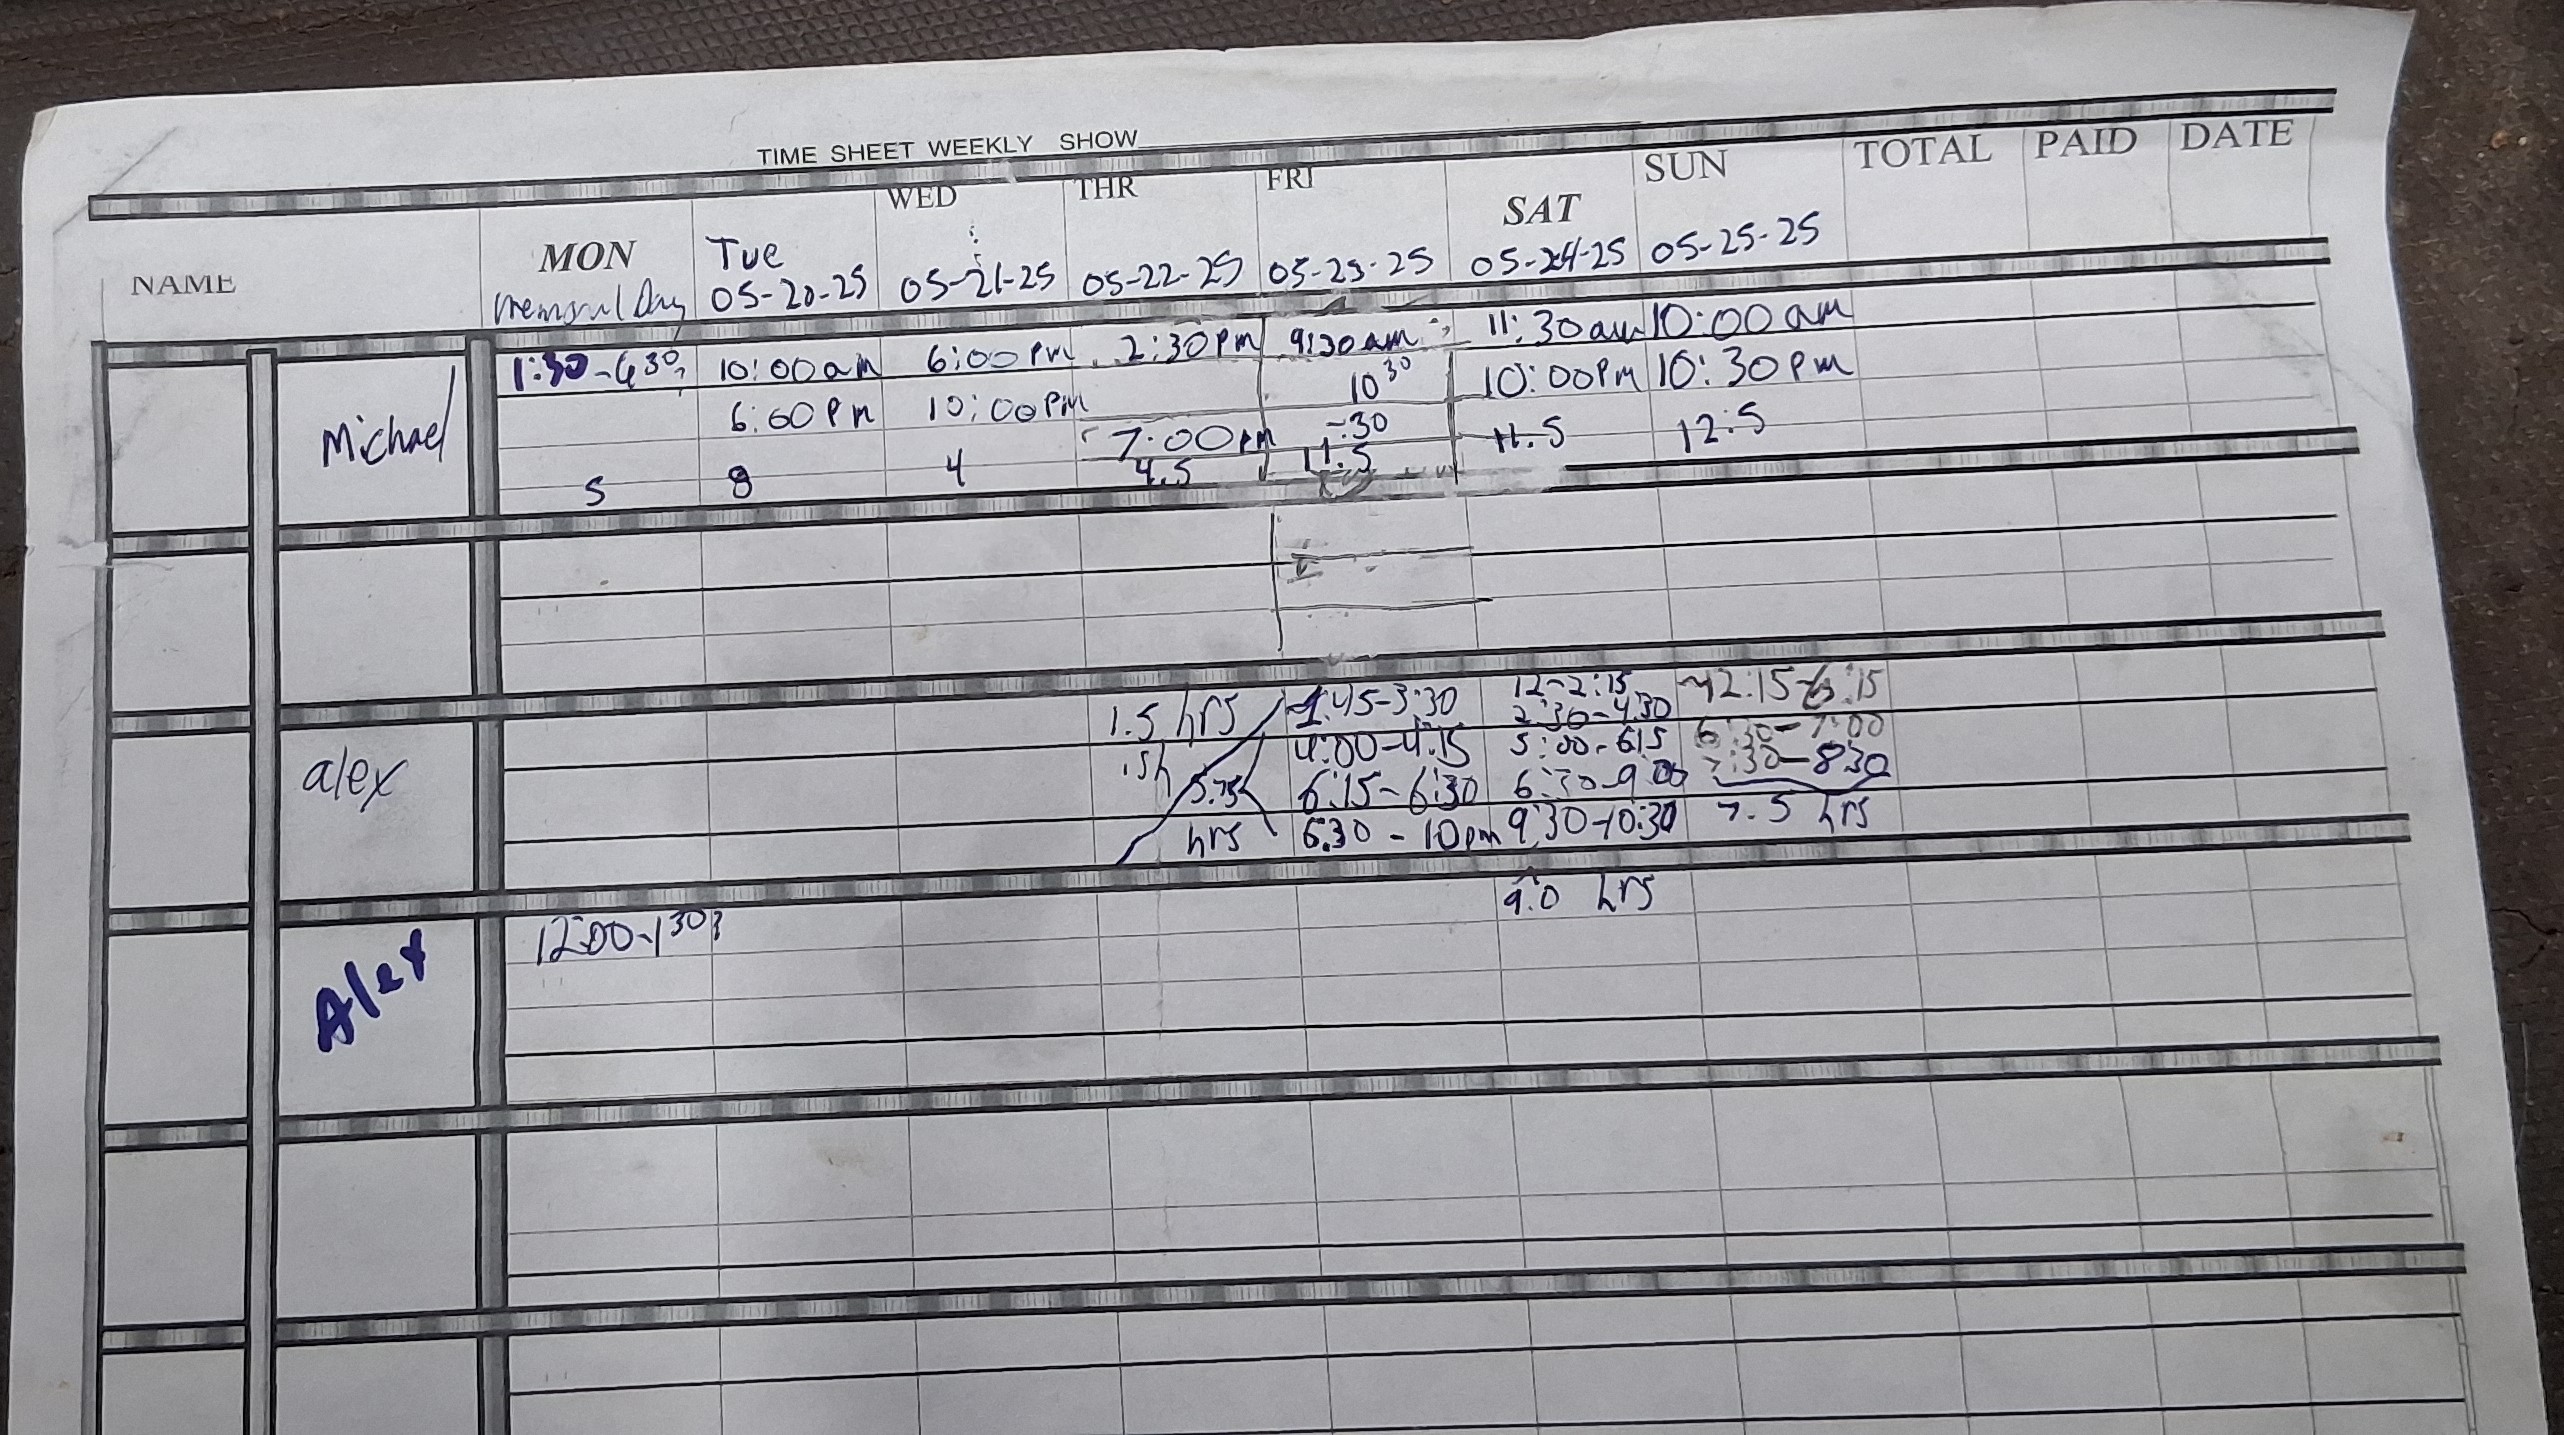 TIME SHEET WEEKLY SHOW
NAME MON Tue WED THR FRI SAT SUN TOTAL PAID DATE
Day 05-20-25 05-21-25 05-22-25 05-23-25 05-24-25 05-25-25
Michael
1:30-630 10:00am 6:00pm 2:30pm 9:30am 11:30am 10:00am
6:00pm 10:00pm 7:00pm 10 30 10:00pm 10:30pm
-30
5 8 4 4.5 11.5 11.5 12.5
alex
1.5 hrs 1:45-3:30 12-2:15 12:15-6:15
4:00-4:15 2:30-4:30 6:30-7:00
5.75 6:15-6:30 5:00-615 7:30-830
hrs 6:30-10pm 6:30-9:00 7.5 hrs
9:30-10:30
9.0 hrs
Alex
12:00-130